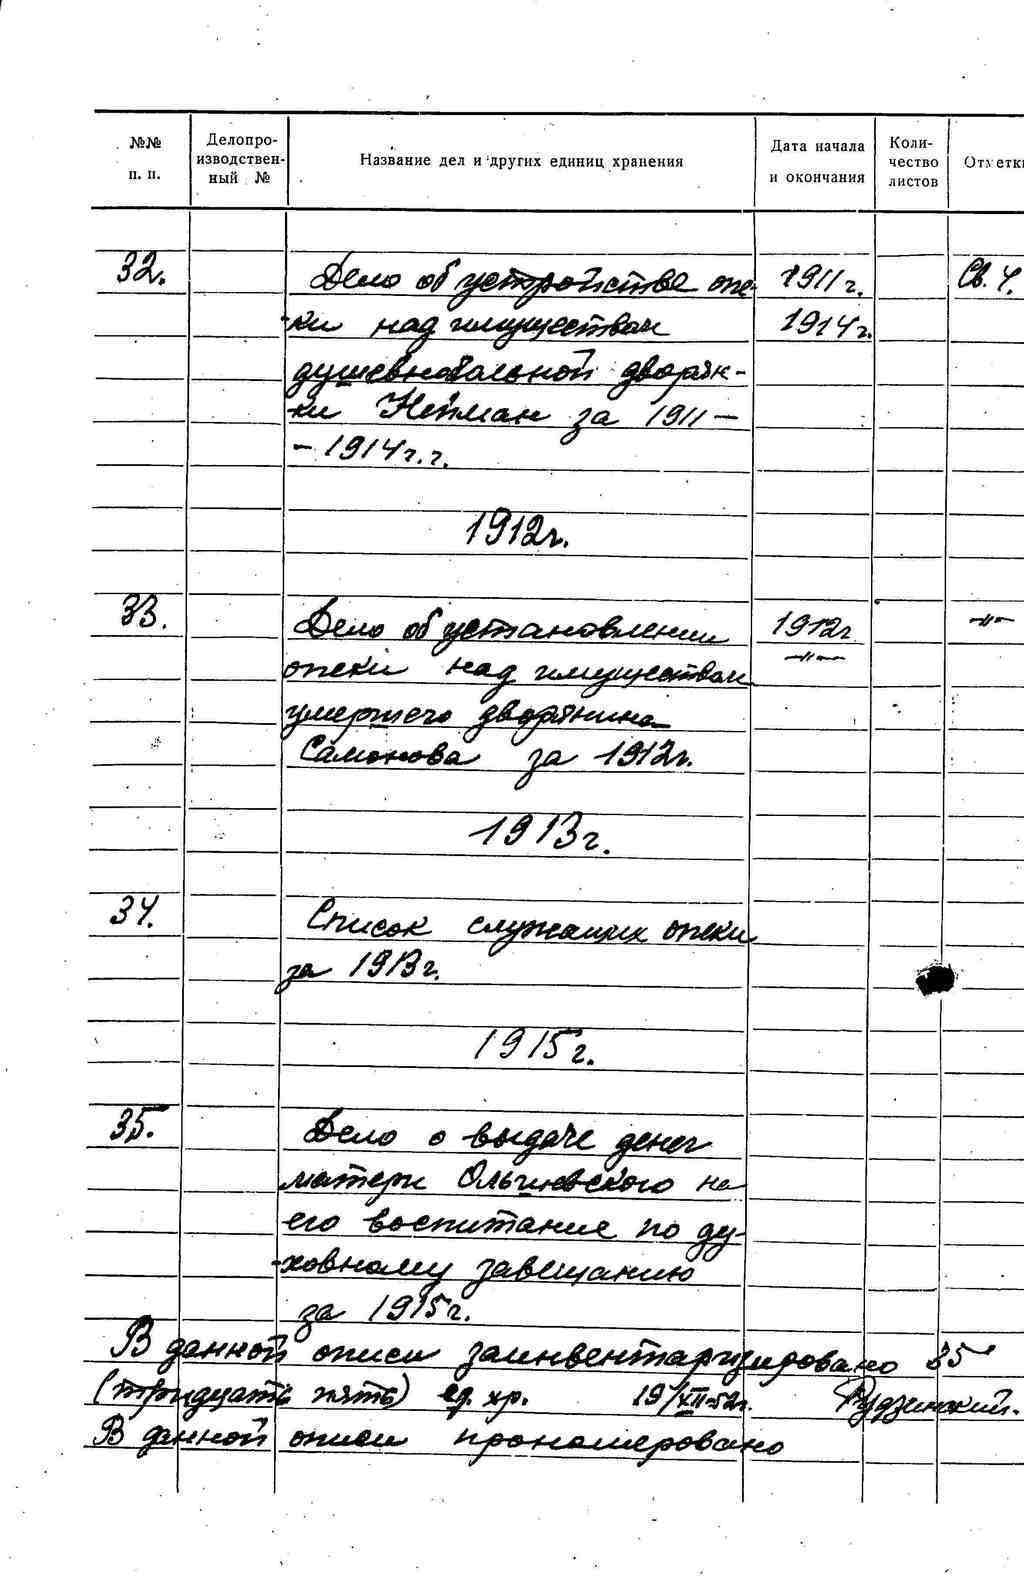 №№ п. п. Делопроизводственный № Название дел и других единиц хранения Дата начала и окончания Количество листов Отметки
32. Дело об устройстве опе- 1911 г. Св. 4.
ки над имуществом 1914 г.
душевнобольной дворян-
ки Нейман за 1911 —
– 1914 г. г.
1912 г.
33. Дело об установлении 1912 г. —"—
опеки над имуществом —"—
умершего дворянина
Самонова за 1912 г.
1913 г.
34. Список служащих опеки
за 1913 г.
1915 г.
35. Дело о выдаче денег
матери Ольшевского на
его воспитание по ду-
ховному завещанию
за 1915 г.
В данной описи заинвентаризировано 35
(тридцать пять) ед. хр. 19/XII-52 г. Рудзинский.
В данной описи прономеровано